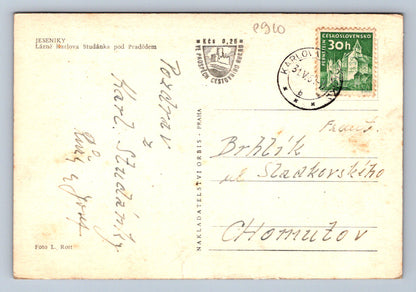 JESENÍKY
Lázně Karlova Studánka pod Pradědem
Kčs 0,20
TJ. PRŮKOPNÍK CESTOVNÍHO RUCHU
p910
ČESKOSLOVENSKO
30h
KARLOVA
31.V.
b
Pozdrav
z
Karl. Studánky
Foto L. Rott
NAKLADATELSTVÍ ORBIS - PRAHA
Frant.
Brhlík
ul Sladkovského
CHOMUTOV